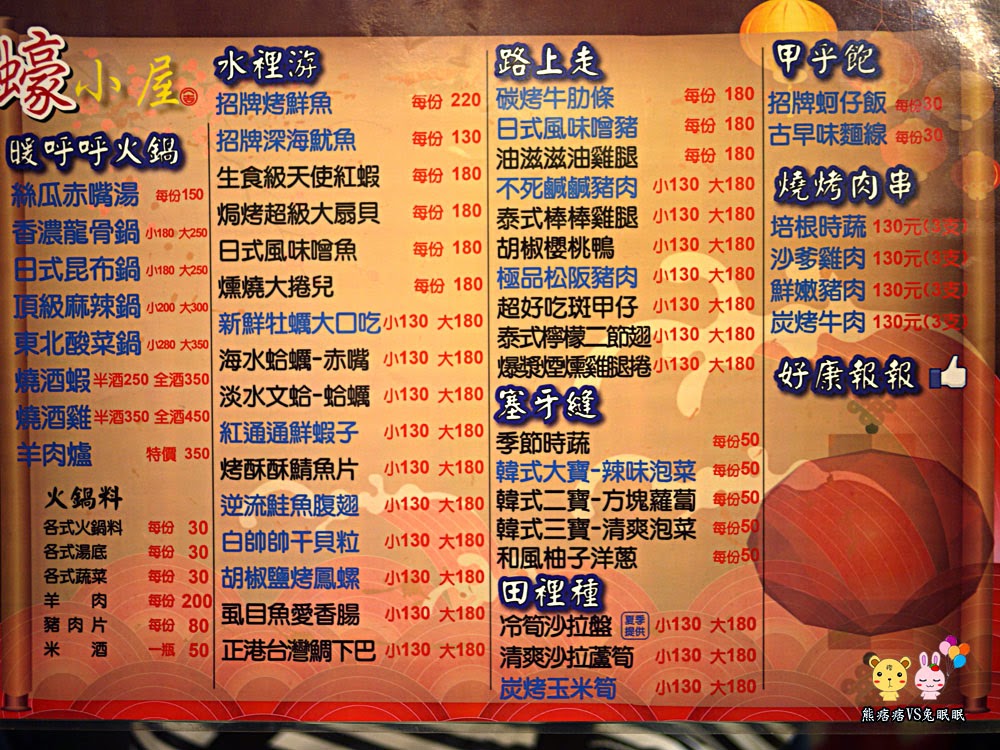 蠔小屋
暖呼呼火鍋
絲瓜赤嘴湯 每份150
香濃龍骨鍋 小180 大250
日式昆布鍋 小180 大250
頂級麻辣鍋 小200 大300
東北酸菜鍋 小280 大350
燒酒蝦 半酒250 全酒350
燒酒雞 半酒350 全酒450
羊肉爐 特價 350
火鍋料
各式火鍋料 每份 30
各式湯底 每份 30
各式蔬菜 每份 30
羊肉 每份 200
豬肉片 每份 80
米酒 一瓶 50
水裡游
招牌烤鮮魚 每份 220
招牌深海魷魚 每份 130
生食級天使紅蝦 每份 180
焗烤超級大扇貝 每份 180
日式風味噌魚 每份 180
燻燒大捲兒 每份 180
新鮮牡蠣大口吃 小130 大180
海水蛤蠣-赤嘴 小130 大180
淡水文蛤-蛤蠣 小130 大180
紅通通鮮蝦子 小130 大180
烤酥酥鯖魚片 小130 大180
逆流鮭魚腹翅 小130 大180
白帥帥干貝粒 小130 大180
胡椒鹽烤鳳螺 小130 大180
虱目魚愛香腸 小130 大180
正港台灣鯛下巴 小130 大180
路上走
碳烤牛肋條 每份 180
日式風味噌豬 每份 180
油滋滋油雞腿 每份 180
不死鹹鹹豬肉 小130 大180
泰式棒棒雞腿 小130 大180
胡椒櫻桃鴨 小130 大180
極品松阪豬肉 小130 大180
超好吃斑甲仔 小130 大180
泰式檸檬二節翅 小130 大180
爆漿煙燻雞腿捲 小130 大180
塞牙縫
季節時蔬 每份50
韓式大寶-辣味泡菜 每份50
韓式二寶-方塊蘿蔔 每份50
韓式三寶-清爽泡菜 每份50
和風柚子洋蔥 每份50
田裡種
冷筍沙拉盤 夏季提供 小130 大180
清爽沙拉蘆筍 小130 大180
炭烤玉米筍 小130 大180
甲乎飽
招牌蚵仔飯 每份30
古早味麵線 每份30
燒烤肉串
培根時蔬 130元(3支)
沙爹雞肉 130元(3支)
鮮嫩豬肉 130元(3支)
炭烤牛肉 130元(3支)
好康報報
熊痞痞VS兔眠眠